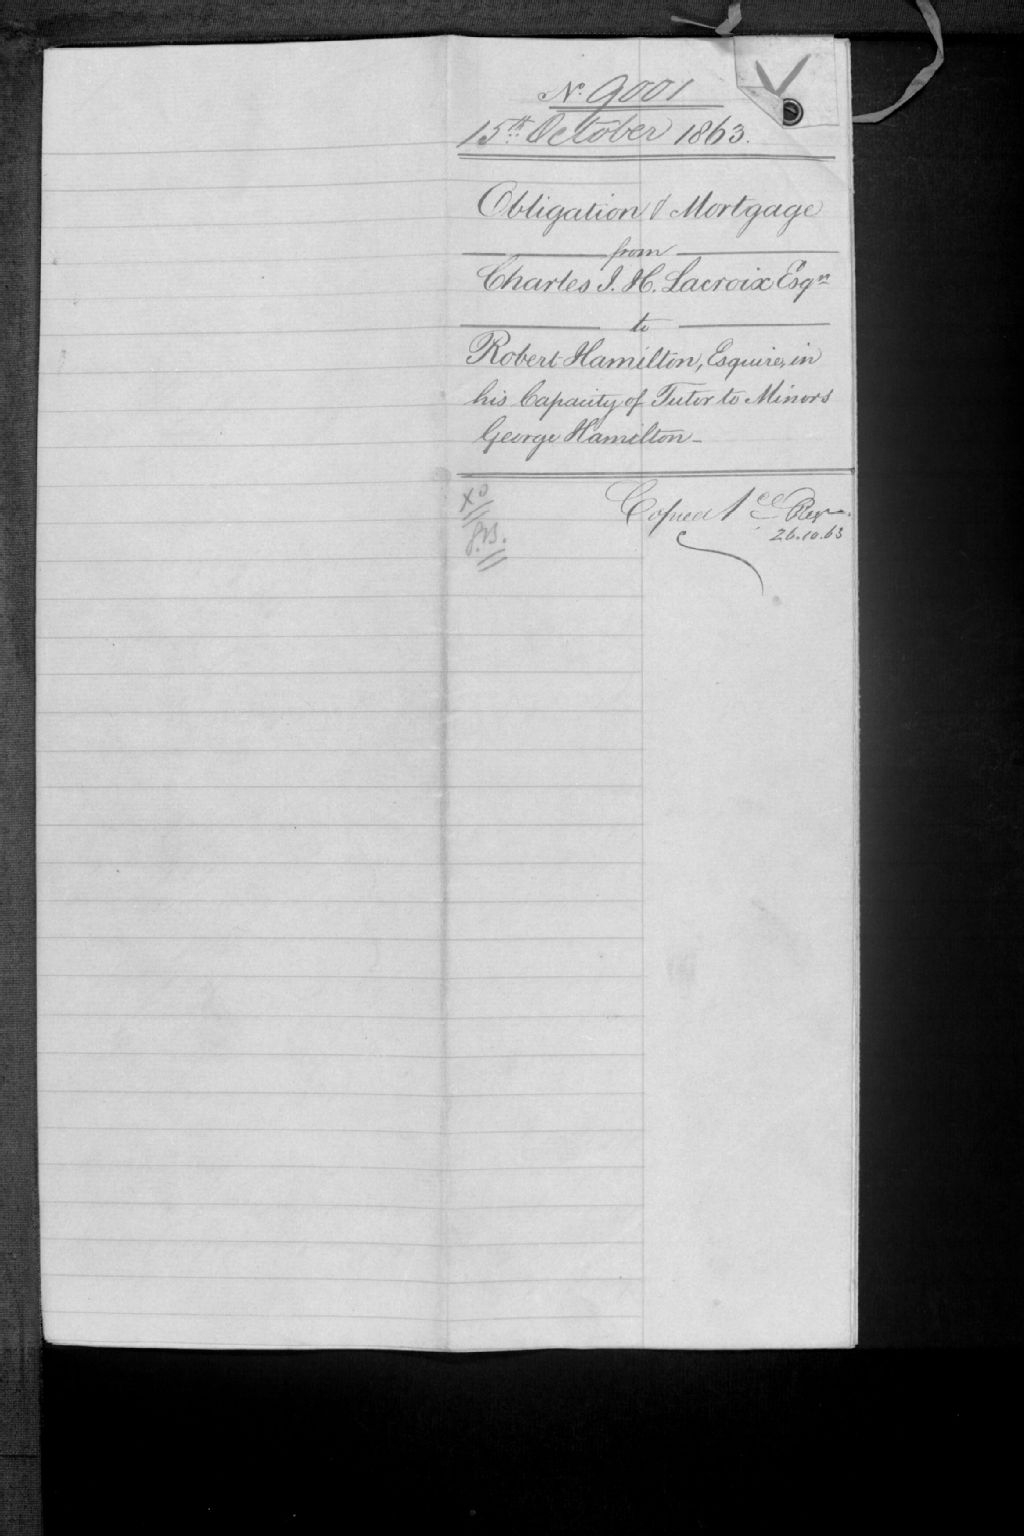 No. 9001
15th October 1863.
Obligation & Mortgage
from
Charles I. H. Lacroix Esqr
to
Robert Hamilton, Esquire, in
his Capacity of Tutor to Minors
George Hamilton
Copied 1
26.10.63